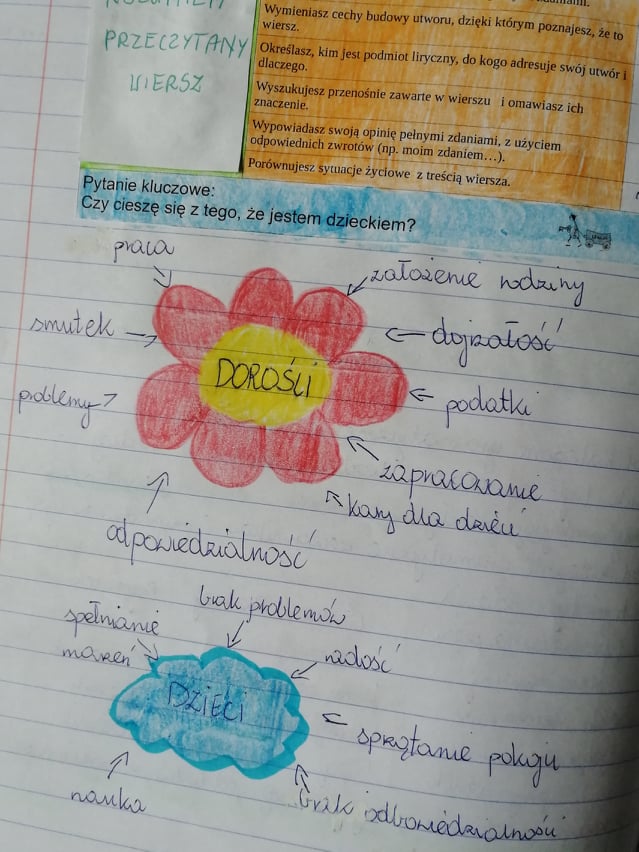 PRZECZYTANY
WIERSZ
Wymieniasz cechy budowy utworu, dzięki którym poznajesz, że to
wiersz.
Określasz, kim jest podmiot liryczny, do kogo adresuje swój utwór i
dlaczego.
Wyszukujesz przenośnie zawarte w wierszu i omawiasz ich
znaczenie.
Wypowiadasz swoją opinię pełnymi zdaniami, z użyciem
odpowiednich zwrotów (np. moim zdaniem…).
Porównujesz sytuacje życiowe z treścią wiersza.
Pytanie kluczowe:
Czy cieszę się z tego, że jestem dzieckiem?
praca
założenie rodziny
smutek
dojrzałość
DOROŚLI
problemy
podatki
zapracowanie
kary dla dzieci
odpowiedzialność
brak problemów
spełnianie
marzeń
radość
DZIECI
sprzątanie pokoju
nauka
brak odpowiedzialności